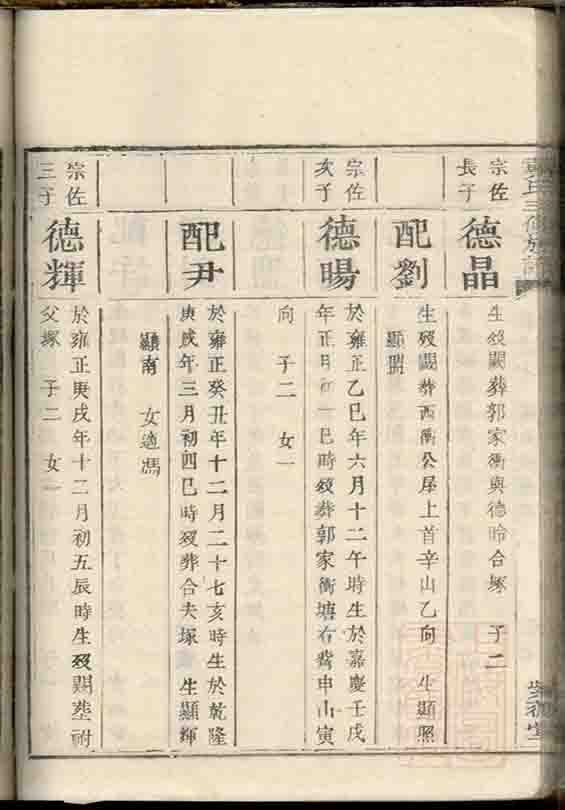 宗佐長子
德晶
生歿闕葬郭家衝與德昤合塚 子二
配劉
生歿闕葬西衝公屋上首辛山乙向 生顯照
顯明
宗佐次子
德暘
於雍正乙巳年六月十二午時生於嘉慶壬戌
年正月初一巳時歿葬郭家衝塘右 申山寅
向 子二 女一
配尹
於雍正癸丑年十二月二十七亥時生於乾隆
庚戌年三月初四巳時歿葬合夫塚 生顯輝
顯南 女適馮
宗佐三子
德輝
於雍正庚戌年十二月初五辰時生歿闕葬祔
父塚 子二 女一